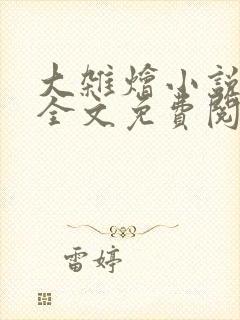 大雜燴小說
全文免費閱
雷婷